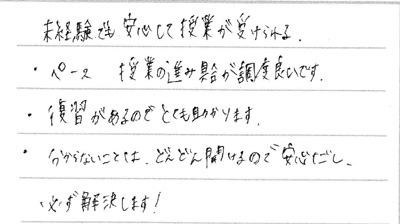 未経験でも安心して授業が受けられる.
・ペース 授業の進み具合が調度良いです.
・復習があるのでとても助かります.
・分からないことは、どんどん聞けるので安心だし、
必ず解決します!